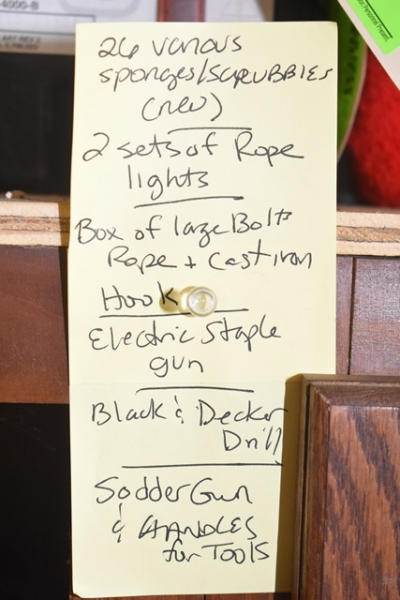 4000-B
26 various
sponges/scrubbies
(new)
2 sets of Rope
lights
Box of large Bolts
Rope + cast iron
Hook
Electric Staple
gun
Black & Decker
Drill
Sodder Gun
& HANDLES
for Tools